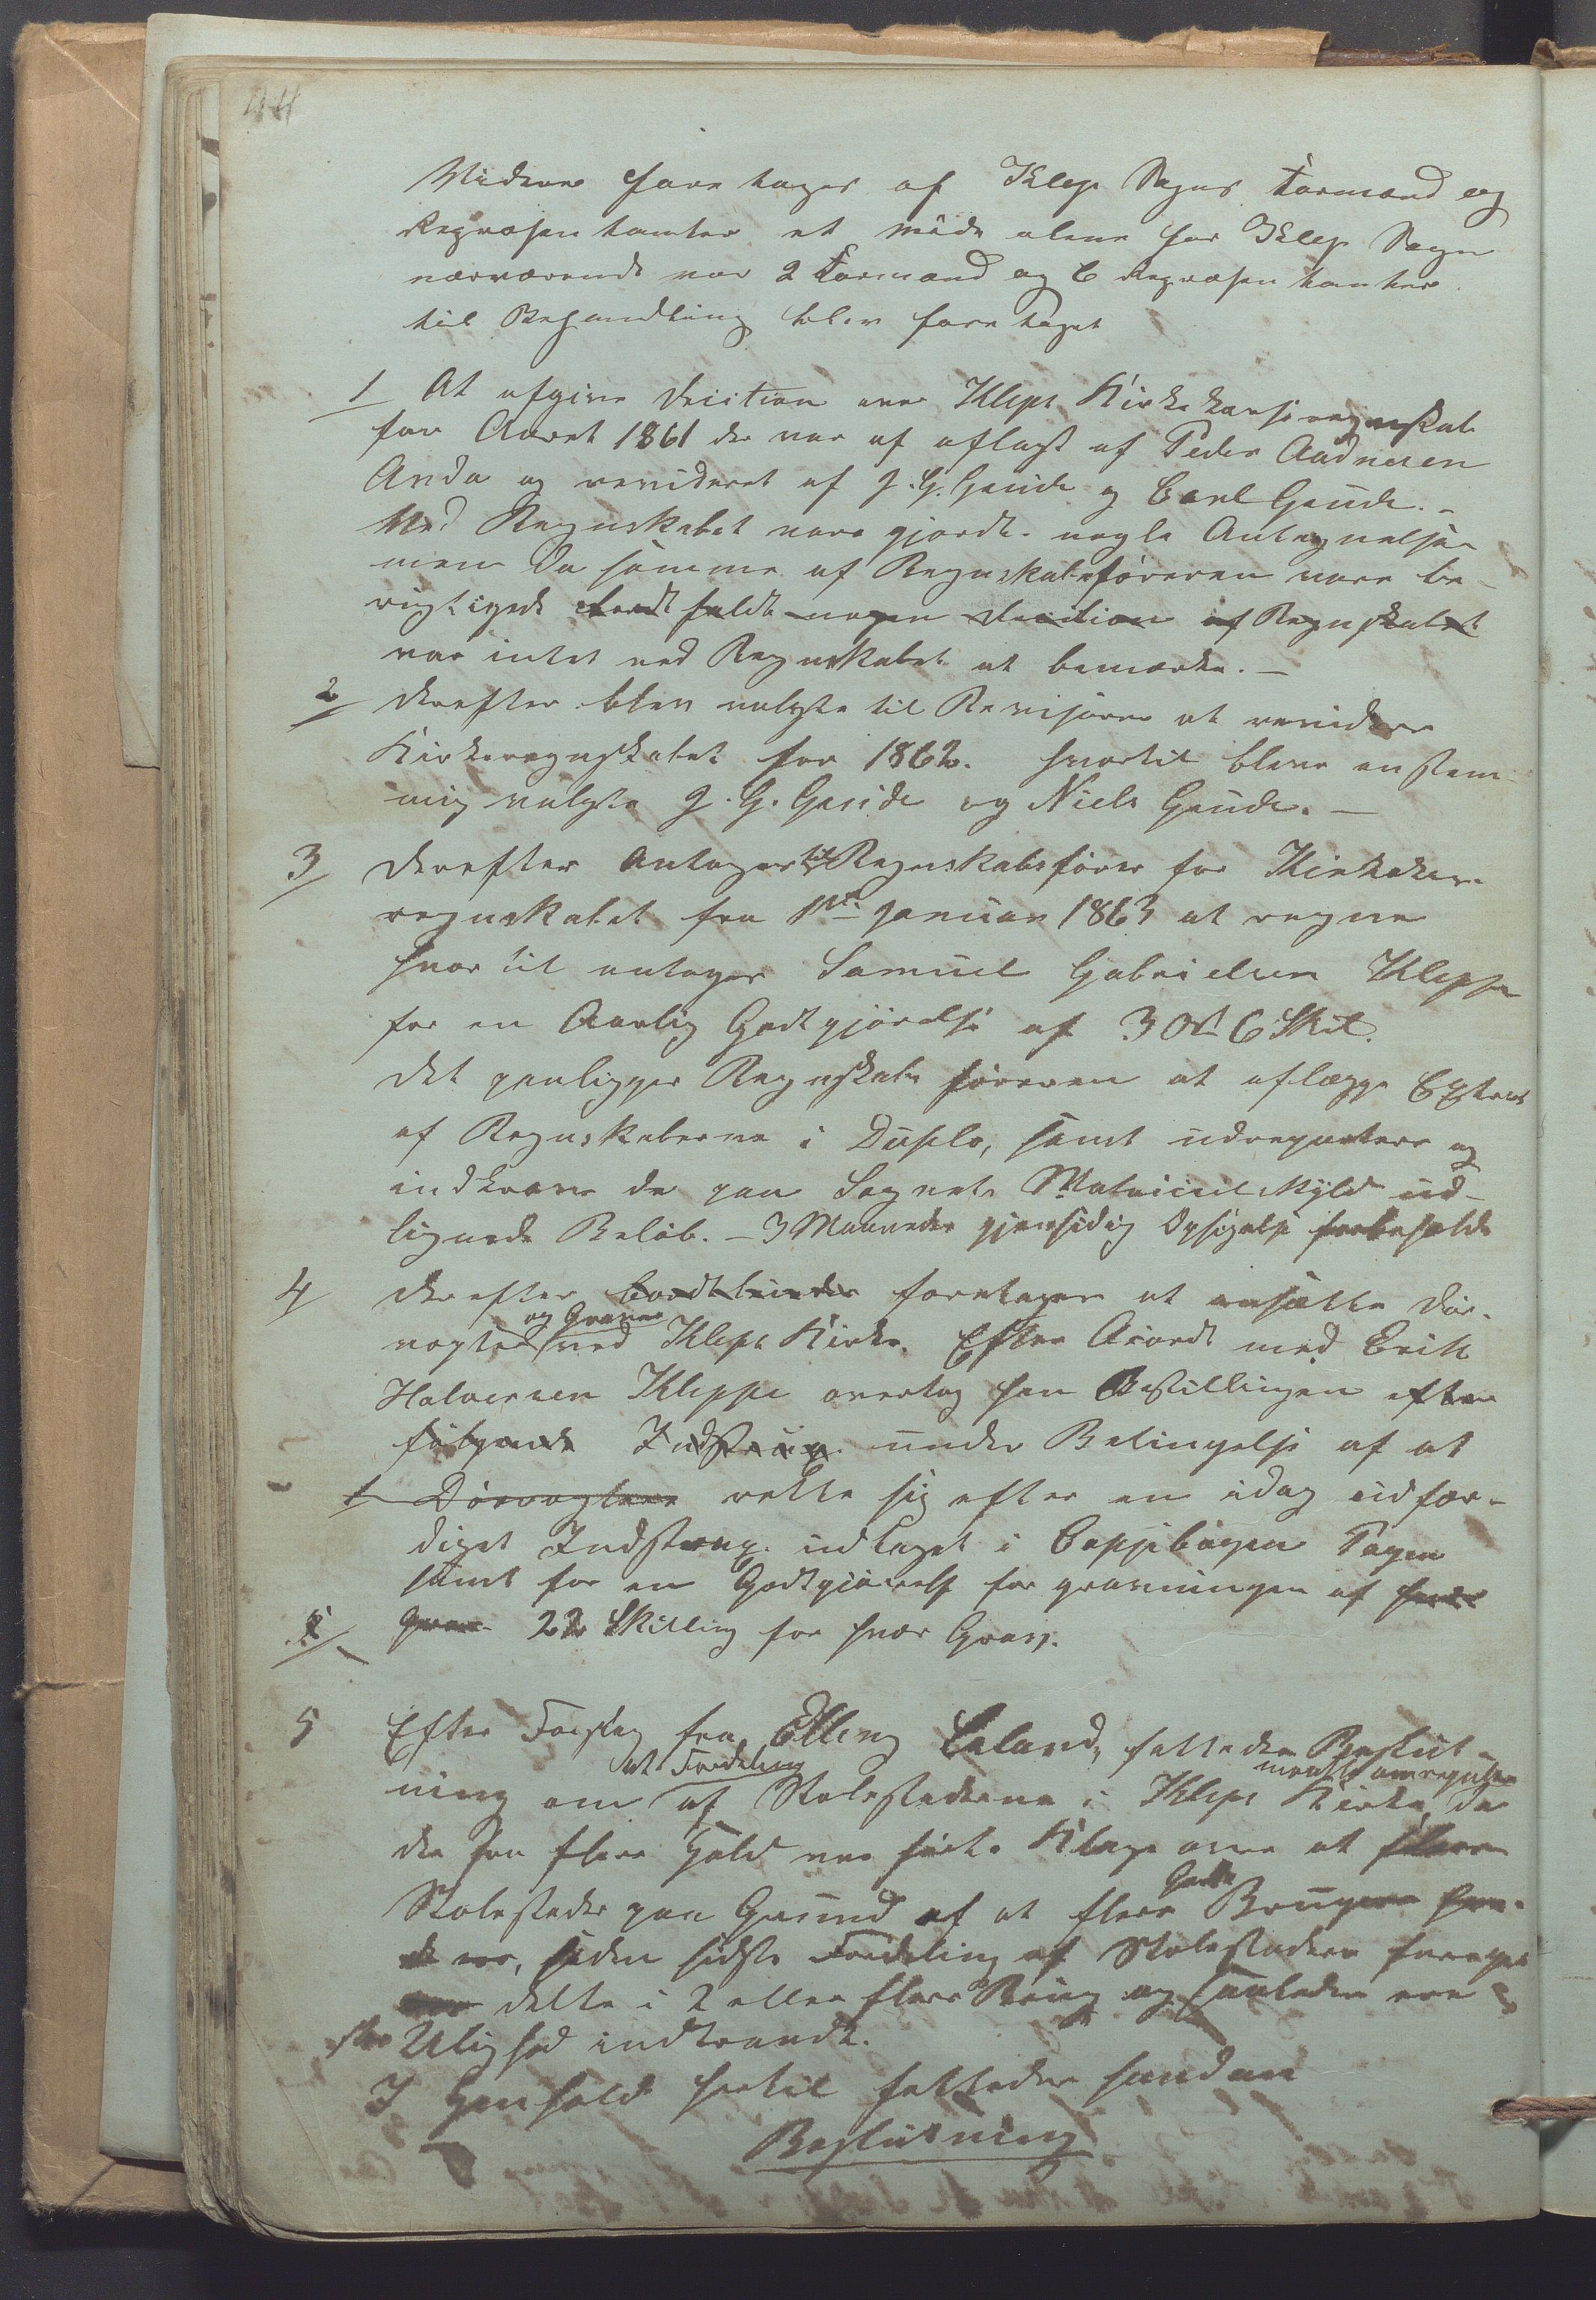 Videre foretages af Klep Sogns Formænd og
Repræsentanter et møde alene for Klep Sogn
nærværende var 2 Formænd og 6 Repræsentanter
til Behandling blev foretaget
1 At afgive Decition over Kleps Kirkekasseregnskab
for Aaret 1861 der var af aflagt af Peder Aadnesen
Anda og revideret af J. G. Gaude og Carl Gaude. –
Ved Regnskabet vare gjordt nogle Antegnelser
men da samme af Regnskabsføreren vare be-
rigtigede fandt nogen Decition af Regnskabet
var intet ved Regnskabet at bemærke. –
2 Derefter blev valgte til Revisorer at revidere
Kirkeregnskabet for 1862. hvortil bleve enstem-
mig valgte J. G. Gaude og Niels Gaude. –
3 Derefter Antages til Regnskabsfører for Kirkekasse
regnskabet fra 1ste Januar 1863 at regne
hvortil antoges Samuel Gabrielsen Kleppe
for en Aarlig Godtgjørelse af 3 Ort 6 Skil.
Det paaligger Regnskabsføreren at aflægge Extract
af Regnskaberne i Duplo, samt udrepartere og
indkræve de paa Sognets Matriculskyld ud-
lignede Beløb. – 3 Maaneder gjensidig Opsigelse forbeholdt
4 Derefter foretages at ansætte Dør-
og Graver
vogter ved Kleps Kirke. Efter Acordt med Erik
Halvorsen Kleppe overtog han Bestillingen efter
følgende Indstrux. under Betingelse af at
1 Dørvogteren rette sig efter en idag udfær-
diget Indstrux. indtaget i Copjibogen Pagen
samt for en Godtgjørelse for gravningen af
Grav 22 Skilling for hver Grav.
5 Efter Forslag fra Elling Eeland, fattedes Beslut-
at Fordeling
ning om af Stolestaderne i Kleps Kirke, da
der fra flere Hold var ført Klage over at flere
Gaarde
Stolestader paa Grund af at flere Brugere
, siden sidste Fordeling af Stolestadene
delte i 2 eller flere Brug og saaledes
Ulighed indtraadt.
I Henhold hertil fattedes saadan
Beslutning